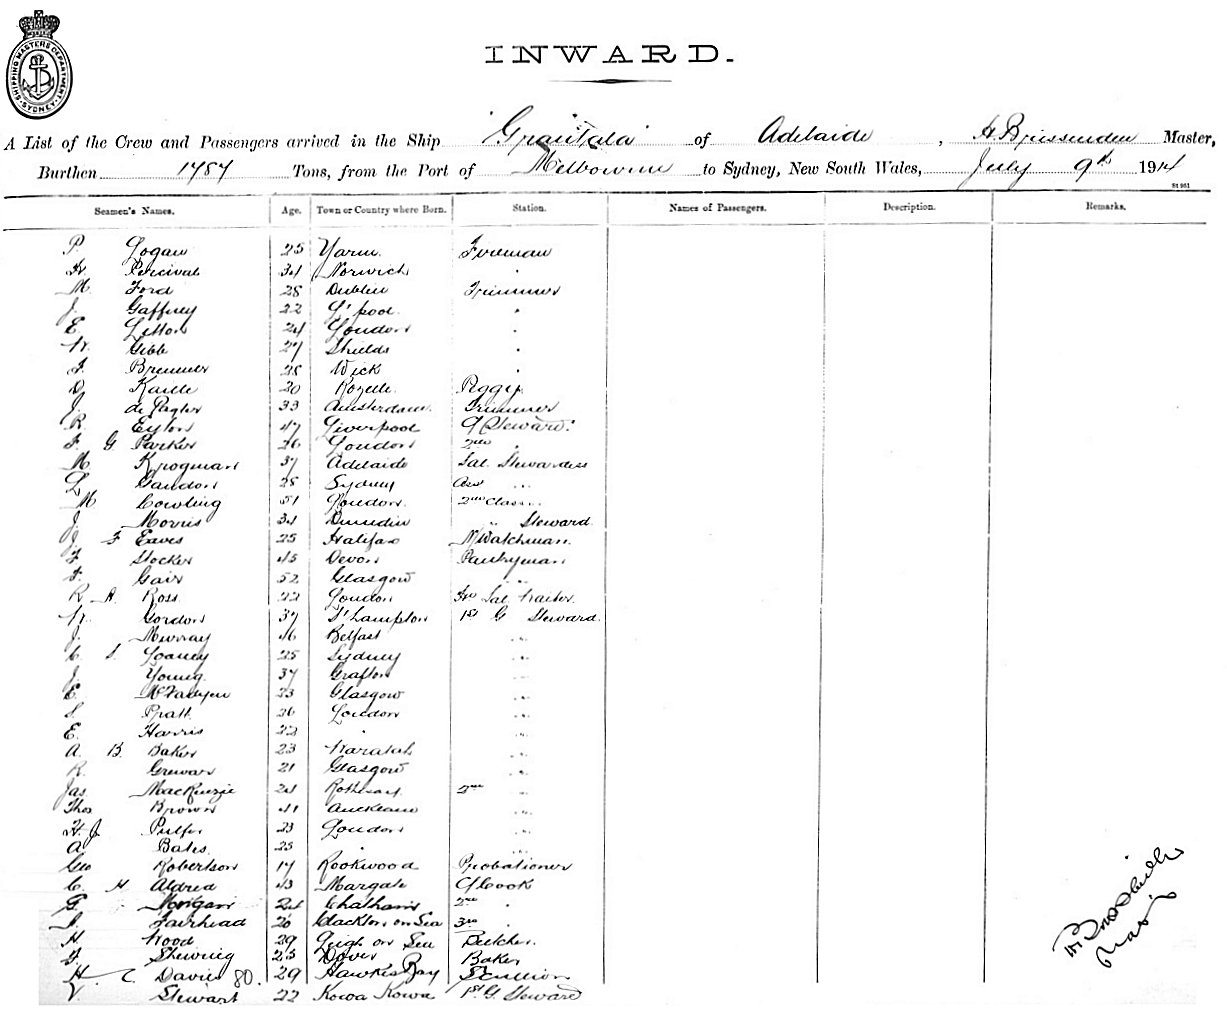 SHIPPING MASTERS DEPARTMENT SYDNEY
INWARD.
A List of the Crew and Passengers arrived in the Ship "Grantala" of Adelaide, H. Brissenden Master,
Burthen 1787 Tons, from the Port of Melbourne to Sydney, New South Wales, July 9th 1914
St 981
Seamen's Names. Age. Town or Country where Born. Station. Names of Passengers. Description. Remarks.
P. Logan 25 Yarm. Fireman
W. Percival 34 Norwich "
M. Ford 28 Dublin Trimmer
J. Gaffney 22 L'pool. "
E. Litton 24 London "
W. Gibb 27 Shields "
J. Bremner 28 Wick "
D. 20 Rozelle. Peggy.
J. 33 Amsterdam. Trimmer
R. Eyton 47 Liverpool C/Steward.
F. G. Parker 26 London 2nd "
M. Krogman 37 Adelaide Sal. Stewardess
L. 28 Sydney Asst " "
M Cowling 51 London. 2nd Class "
J. Morris 34 Dunedin " Steward.
J. F Eaves 25 Halifax N/Watchman.
F Stocker 45 Devon Pantryman
F. Gair 52 Glasgow " "
R. A. Ross 22 London Fre Sal. Waiter.
W. Gordon 37 S'Hampton 1st G Steward.
J. Murray 46 Belfast " "
C. S. Loaney 25 Sydney " "
J. Young. 37 Grafton " "
E. McFadyen 23 Glasgow " "
S. Pratt. 26 London " "
E. Harris 22 " " "
A. B. Baker 23 Waratah " "
R. Grewar 21 Glasgow " "
Jas. MacKenzie 24 Rothesay 2nd " "
Thos Brown 41 Auckland " "
H. J. Pulfer 23 London " "
A Bates. 25 " " "
Geo Robertson 17 Rookwood Probationer
C. H Aldred 43 Margate C/Cook
G. Morgan 24 Chatham 2nd "
J. Fairhead 20 Clackton on Sea 3rd "
H. Wood 29 Leigh on Sea Butcher.
F. Shewring 23 Dover Baker
H. C. Davies 80. 29 Hawkes Bay Scullion
V Stewart 22 Kowa Kowa 1st. G. Steward